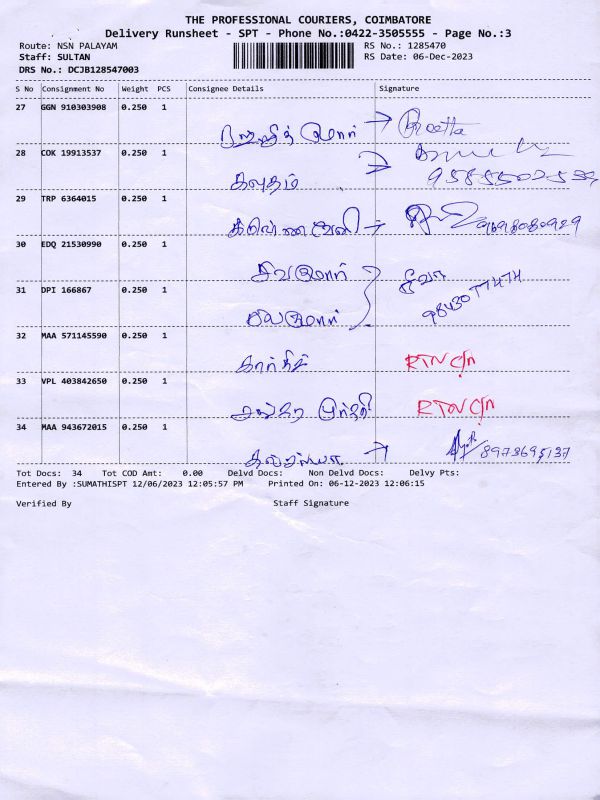 THE PROFESSIONAL COURIERS, COIMBATORE
Delivery Runsheet - SPT - Phone No.:0422-3505555 - Page No.:3
Route: NSN PALAYAM RS No.: 1285470
Staff: SULTAN RS Date: 06-Dec-2023
DRS No.: DCJB128547003
S No Consignment No Weight PCS Consignee Details Signature
27 GGN 910303908 0.250 1
28 COK 19913537 0.250 1
கவுதம்
29 TRP 6364015 0.250 1
9698080929
30 EDQ 21530990 0.250 1
சிவகுமார்
31 DPI 166867 0.250 1
9843077474
32 MAA 571145590 0.250 1
கார்த்திக் RTN C/n
33 VPL 403842650 0.250 1
RTN C/n
34 MAA 943672015 0.250 1
8973695137
Tot Docs: 34 Tot COD Amt: 0.00 Delvd Docs: Non Delvd Docs: Delvy Pts:
Entered By :SUMATHISPT 12/06/2023 12:05:57 PM Printed On: 06-12-2023 12:06:15
Verified By Staff Signature